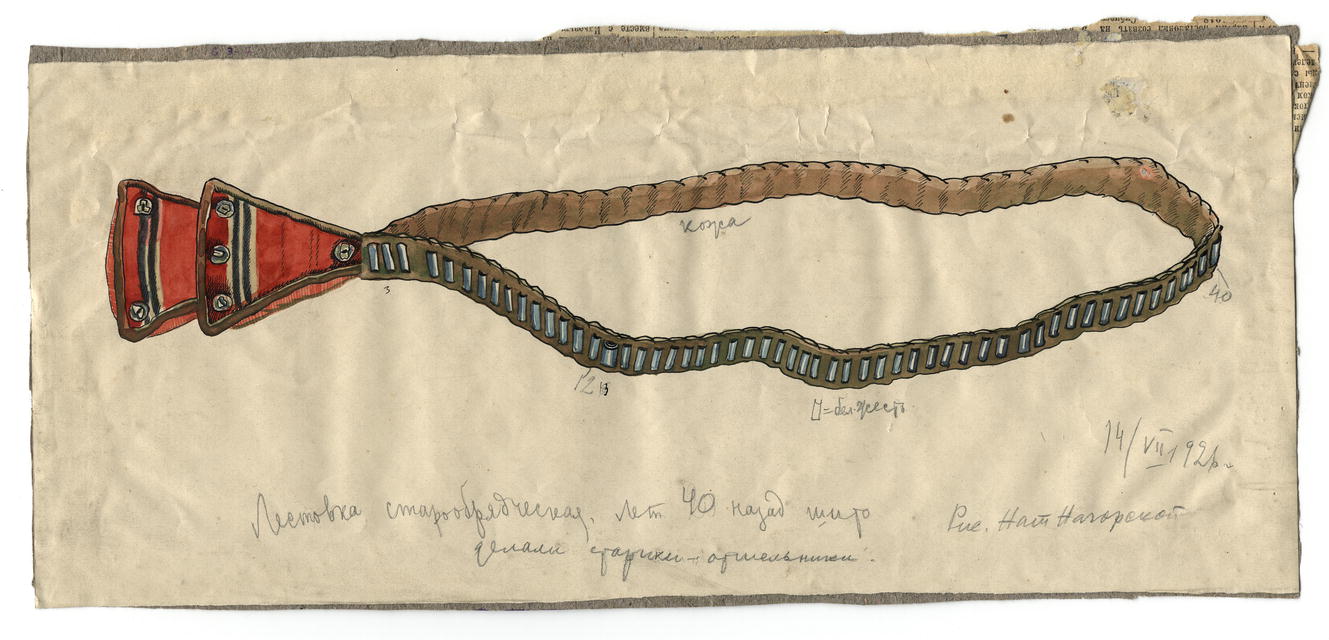 кожа
3
40
12
= бел. жесть
14/VII 192
Лестовка старообрядческая, лет 40 назад шито
делали старики-отшельники.
Рис. Нат Нагорской